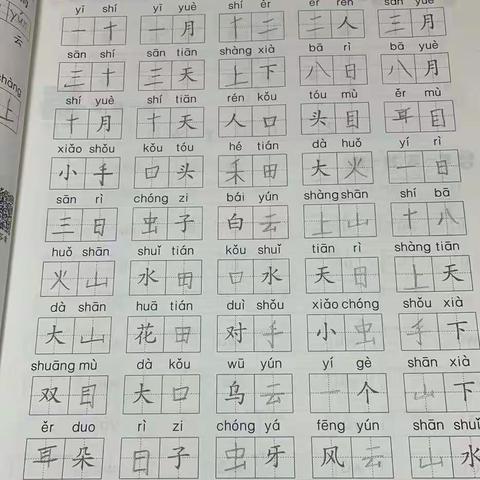 yī shí yī yuè shí èr èr rén sān yuè
一十 一月 十二 二人 三月
sān shí sān tiān shàng xià bā rì bā yuè
三十 三天 上下 八日 八月
shí yuè shí tiān rén kǒu tóu mù ěr mù
十月 十天 人口 头目 耳目
xiǎo shǒu kǒu tóu hé tián dà huǒ yí rì
小手 口头 禾田 大火 一日
sān rì chóng zi bái yún shàng shān shí bā
三日 虫子 白云 上山 十八
huǒ shān shuǐ tián kǒu shuǐ tiān rì shàng tiān
火山 水田 口水 天日 上天
dà shān huā tián duì shǒu xiǎo chóng shǒu xià
大山 花田 对手 小虫 手下
shuāng mù dà kǒu wū yún yí gè shān xià
双目 大口 乌云 一个 山下
ěr duo rì zi chóng yá fēng yún shān shuǐ
耳朵 日子 虫牙 风云 山水
云
上